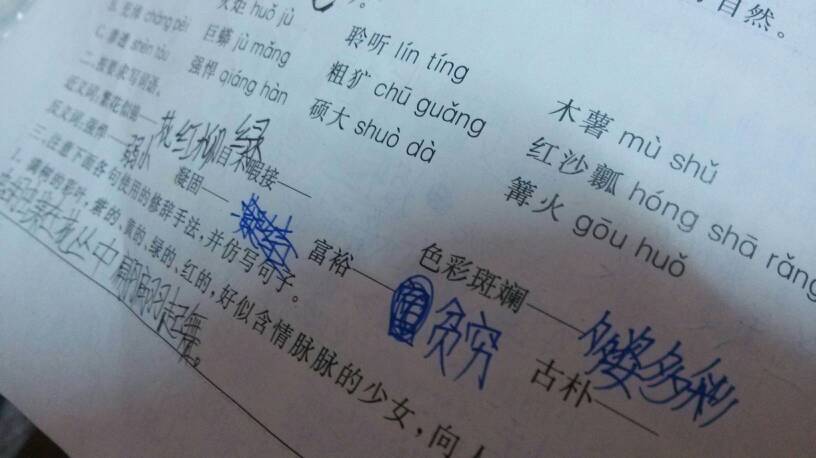 自然。
火炬 huǒ jù
聆听 lín tíng
木薯 mù shǔ
巨蟒 jù mǎng
粗犷 chū guǎng
红沙瓤 hóng shā ráng
强悍 qiáng hàn
硕大 shuò dà
篝火 gōu huǒ
二、按要求写词语。
近义词:繁花似锦——花红柳绿 目不暇接—— 色彩斑斓——多姿多彩
反义词:强悍——弱小 凝固—— 富裕——贫穷 古朴——
三、注意下面各句使用的修辞手法,并仿写句子。
1. 满树的彩叶,紫的、黄的、绿的、红的,好似含情脉脉的少女,向人
在花丛中翩翩起舞。